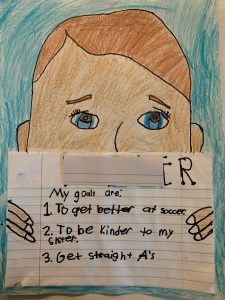 ER
My goals are:
1. To get better at soccer.
2. To be kinder to my
sister.
3. Get straight A's